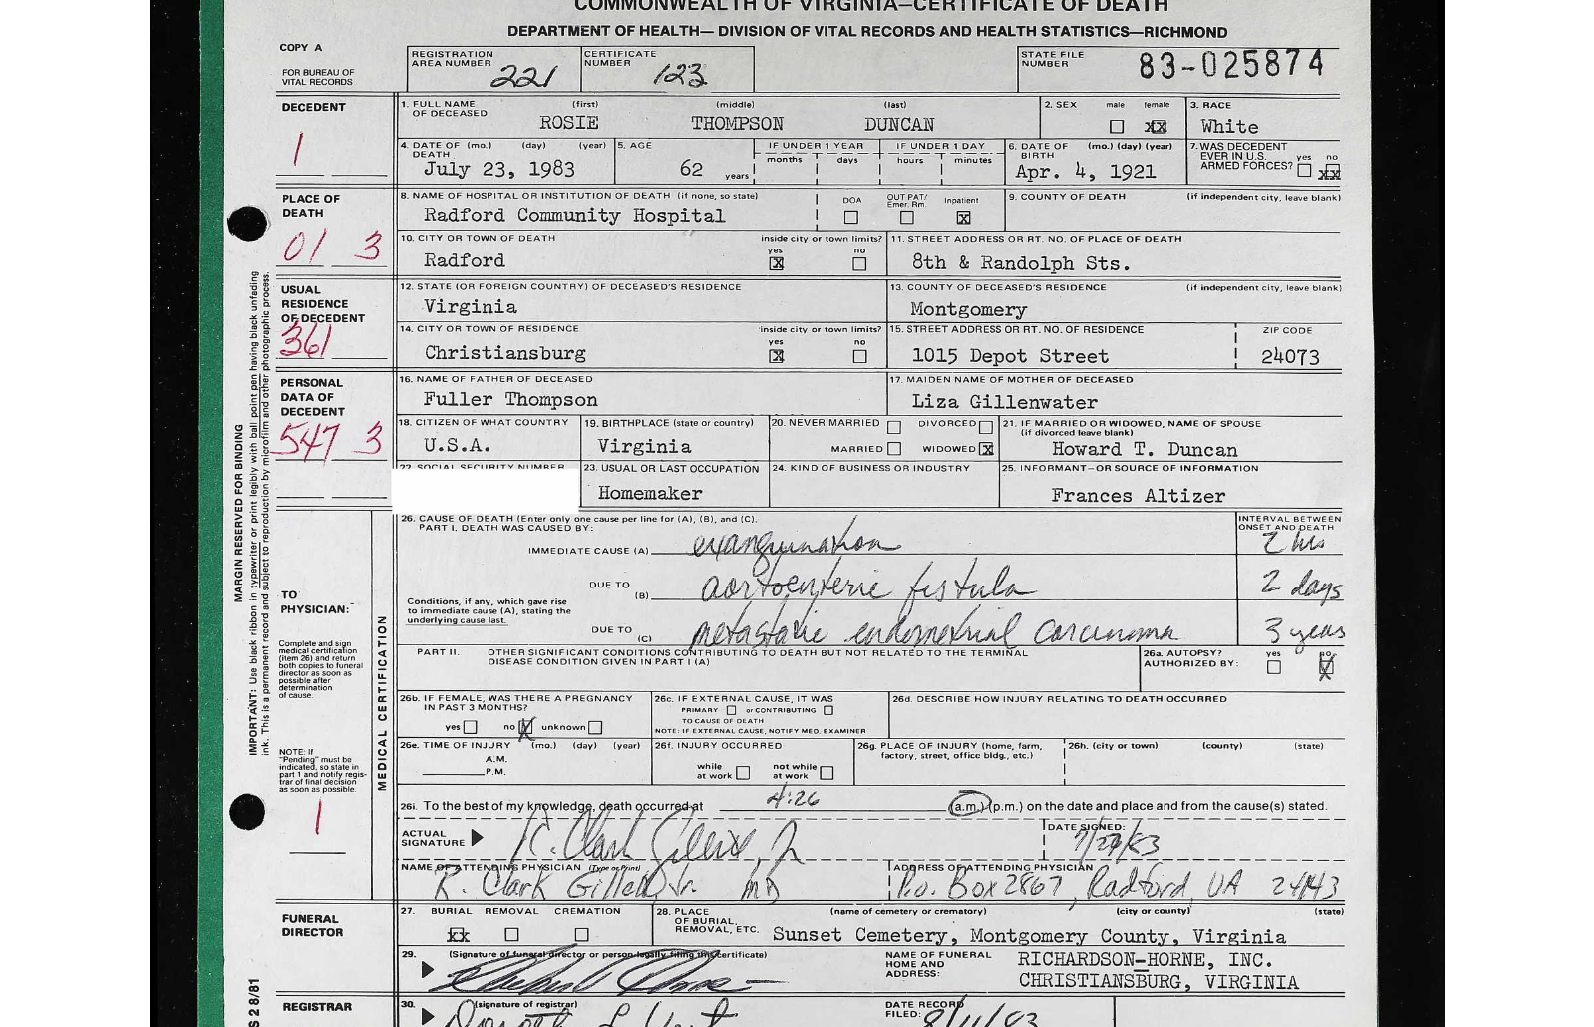 COMMONWEALTH OF VIRGINIA—CERTIFICATE OF DEATH
DEPARTMENT OF HEALTH— DIVISION OF VITAL RECORDS AND HEALTH STATISTICS—RICHMOND
COPY A
FOR BUREAU OF VITAL RECORDS
REGISTRATION AREA NUMBER 221
CERTIFICATE NUMBER 123
STATE FILE NUMBER 83-025874
DECEDENT
1
1. FULL NAME OF DECEASED (first) (middle) (last)
ROSIE THOMPSON DUNCAN
2. SEX male female XX
3. RACE
White
4. DATE OF DEATH (mo.) (day) (year)
July 23, 1983
5. AGE
62 years
IF UNDER 1 YEAR months days
IF UNDER 1 DAY hours minutes
6. DATE OF BIRTH (mo.) (day) (year)
Apr. 4, 1921
7. WAS DECEDENT EVER IN U.S. ARMED FORCES? yes no XX
PLACE OF DEATH
01 3
8. NAME OF HOSPITAL OR INSTITUTION OF DEATH (if none, so state)
Radford Community Hospital
DOA OUT PAT/ Emer. Rm. Inpatient X
9. COUNTY OF DEATH (if independent city, leave blank)
10. CITY OR TOWN OF DEATH inside city or town limits? yes no
Radford X
11. STREET ADDRESS OR RT. NO. OF PLACE OF DEATH
8th & Randolph Sts.
USUAL RESIDENCE OF DECEDENT
361
12. STATE (OR FOREIGN COUNTRY) OF DECEASED'S RESIDENCE
Virginia
13. COUNTY OF DECEASED'S RESIDENCE (if independent city, leave blank)
Montgomery
14. CITY OR TOWN OF RESIDENCE inside city or town limits? yes no
Christiansburg X
15. STREET ADDRESS OR RT. NO. OF RESIDENCE ZIP CODE
1015 Depot Street 24073
PERSONAL DATA OF DECEDENT
547 3
16. NAME OF FATHER OF DECEASED
Fuller Thompson
17. MAIDEN NAME OF MOTHER OF DECEASED
Liza Gillenwater
18. CITIZEN OF WHAT COUNTRY
U.S.A.
19. BIRTHPLACE (state or country)
Virginia
20. NEVER MARRIED DIVORCED
MARRIED WIDOWED X
21. IF MARRIED OR WIDOWED, NAME OF SPOUSE (if divorced leave blank)
Howard T. Duncan
22. SOCIAL SECURITY NUMBER
23. USUAL OR LAST OCCUPATION
Homemaker
24. KIND OF BUSINESS OR INDUSTRY
25. INFORMANT—OR SOURCE OF INFORMATION
Frances Altizer
MARGIN RESERVED FOR BINDING
IMPORTANT: Use black ribbon in typewriter or print legibly with ball point pen having black unfading ink. This is a permanent record and subject to reproduction by microfilm and other photographic process.
TO PHYSICIAN:
Complete and sign medical certification (item 26) and return both copies to funeral director as soon as possible after determination of cause.
NOTE: If "Pending" must be indicated, so state in part 1 and notify registrar of final decision as soon as possible.
1
MEDICAL CERTIFICATION
26. CAUSE OF DEATH (Enter only one cause per line for (A), (B), and (C).
PART I. DEATH WAS CAUSED BY:
INTERVAL BETWEEN ONSET AND DEATH
IMMEDIATE CAUSE (A) exanguination 2 hrs
DUE TO (B) aortoenteric fistula 2 days
Conditions, if any, which gave rise to immediate cause (A), stating the underlying cause last.
DUE TO (C) metastatic endometrial carcinoma 3 years
PART II. OTHER SIGNIFICANT CONDITIONS CONTRIBUTING TO DEATH BUT NOT RELATED TO THE TERMINAL DISEASE CONDITION GIVEN IN PART I (A)
26a. AUTOPSY? AUTHORIZED BY: yes no
26b. IF FEMALE, WAS THERE A PREGNANCY IN PAST 3 MONTHS?
yes no X unknown
26c. IF EXTERNAL CAUSE, IT WAS
PRIMARY or CONTRIBUTING
TO CAUSE OF DEATH
NOTE: IF EXTERNAL CAUSE, NOTIFY MED. EXAMINER
26d. DESCRIBE HOW INJURY RELATING TO DEATH OCCURRED
26e. TIME OF INJURY (mo.) (day) (year)
A.M.
P.M.
26f. INJURY OCCURRED
while at work not while at work
26g. PLACE OF INJURY (home, farm, factory, street, office bldg., etc.)
26h. (city or town) (county) (state)
26i. To the best of my knowledge, death occurred at 4:26 (a.m.) (p.m.) on the date and place and from the cause(s) stated.
ACTUAL SIGNATURE R. Clark Gillett, Jr
DATE SIGNED:
NAME OF ATTENDING PHYSICIAN (Type or Print)
R. Clark Gillett Jr. MD
ADDRESS OF ATTENDING PHYSICIAN
P.O. Box 2867, Radford, VA 24143
FUNERAL DIRECTOR
27. BURIAL REMOVAL CREMATION
XX
28. PLACE OF BURIAL, REMOVAL, ETC. (name of cemetery or crematory) (city or county) (state)
Sunset Cemetery, Montgomery County, Virginia
29. (Signature of funeral director or person legally filing this certificate)
NAME OF FUNERAL HOME AND ADDRESS:
RICHARDSON-HORNE, INC.
CHRISTIANSBURG, VIRGINIA
REGISTRAR
30. (signature of registrar)
DATE RECORD FILED: 8/11/83
S 2 8/81